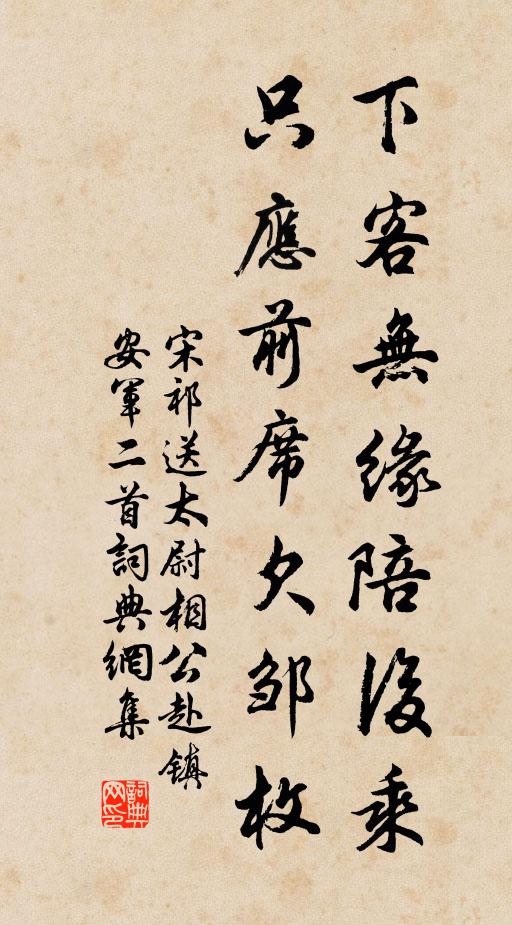 下客無緣陪後乘
只應前席欠鄒枚
宋祁送太尉相公赴鎮
安軍二首詞典網集
詞典網印